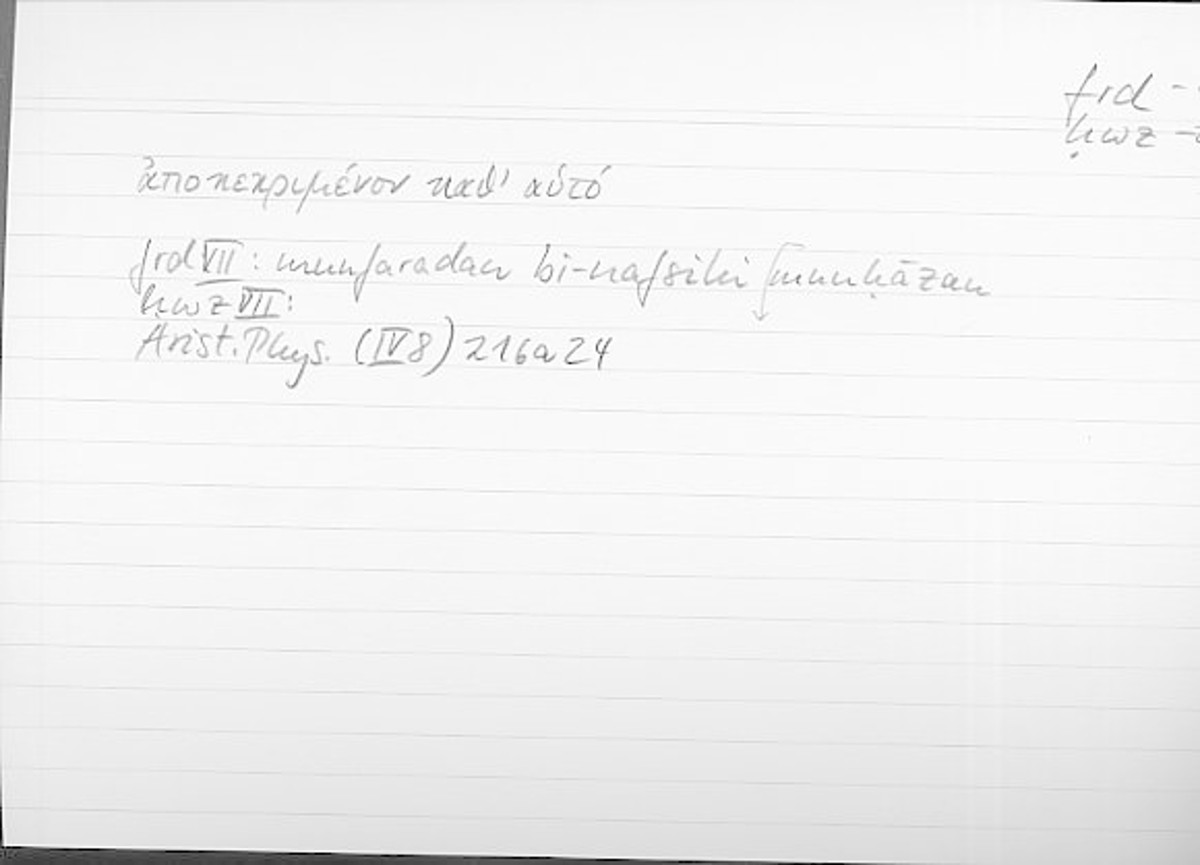 frd -
ḥwz -
ἀποκεκριμένον καθ' αὑτό
frd VII: munfaradan bi-nafsihi munḥāzan
ḥwz VII:
Arist. Phys. (IV 8) 216a24